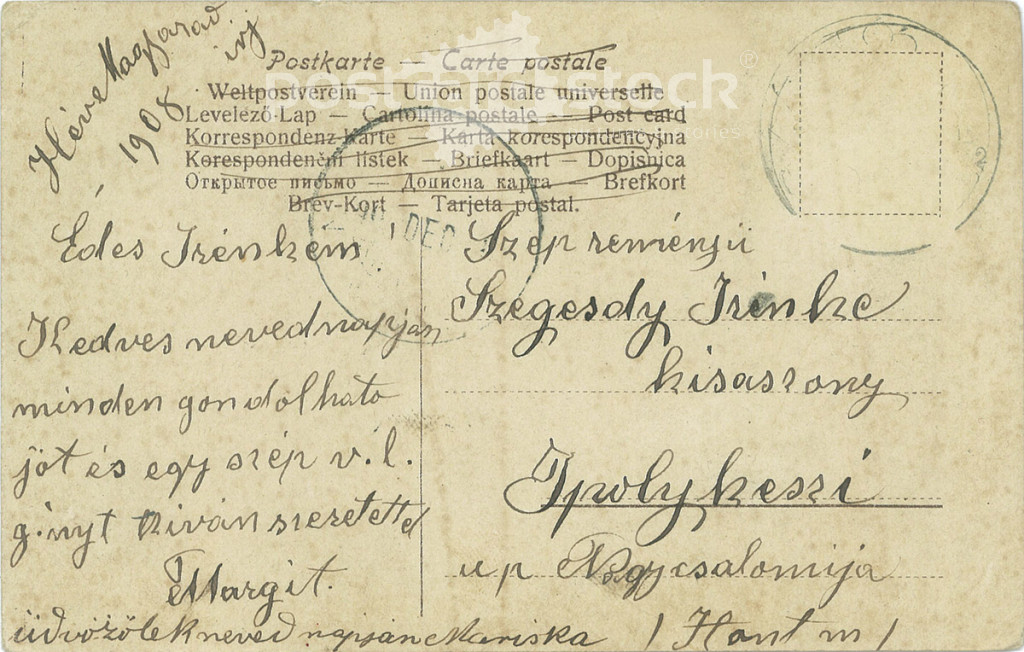 Héve Magyarad
1908 ivj
Postkarte — Carte postale
Weltpostverein — Union postale universelle
Levelező-Lap — Cartolina postale — Post card
Korrespondenz-Karte — Karta korespondencyjna
Korespondenční lístek — Briefkaart — Dopisnica
Открытое письмо — Дописна карта — Brefkort
Brev-Kort — Tarjeta postal.
DEC
2
Édes Irénkém
Kedves nevednapján
minden gondolható
jót és egy szép v.l.
g.nyt kiván szeretetted
Margit.
üdvözölek neved napján Mariska
Szép reményü
Szegesdy Irénke
kisaszony
Ipolykeszi
up Nagycsalomija
/ Hont m /